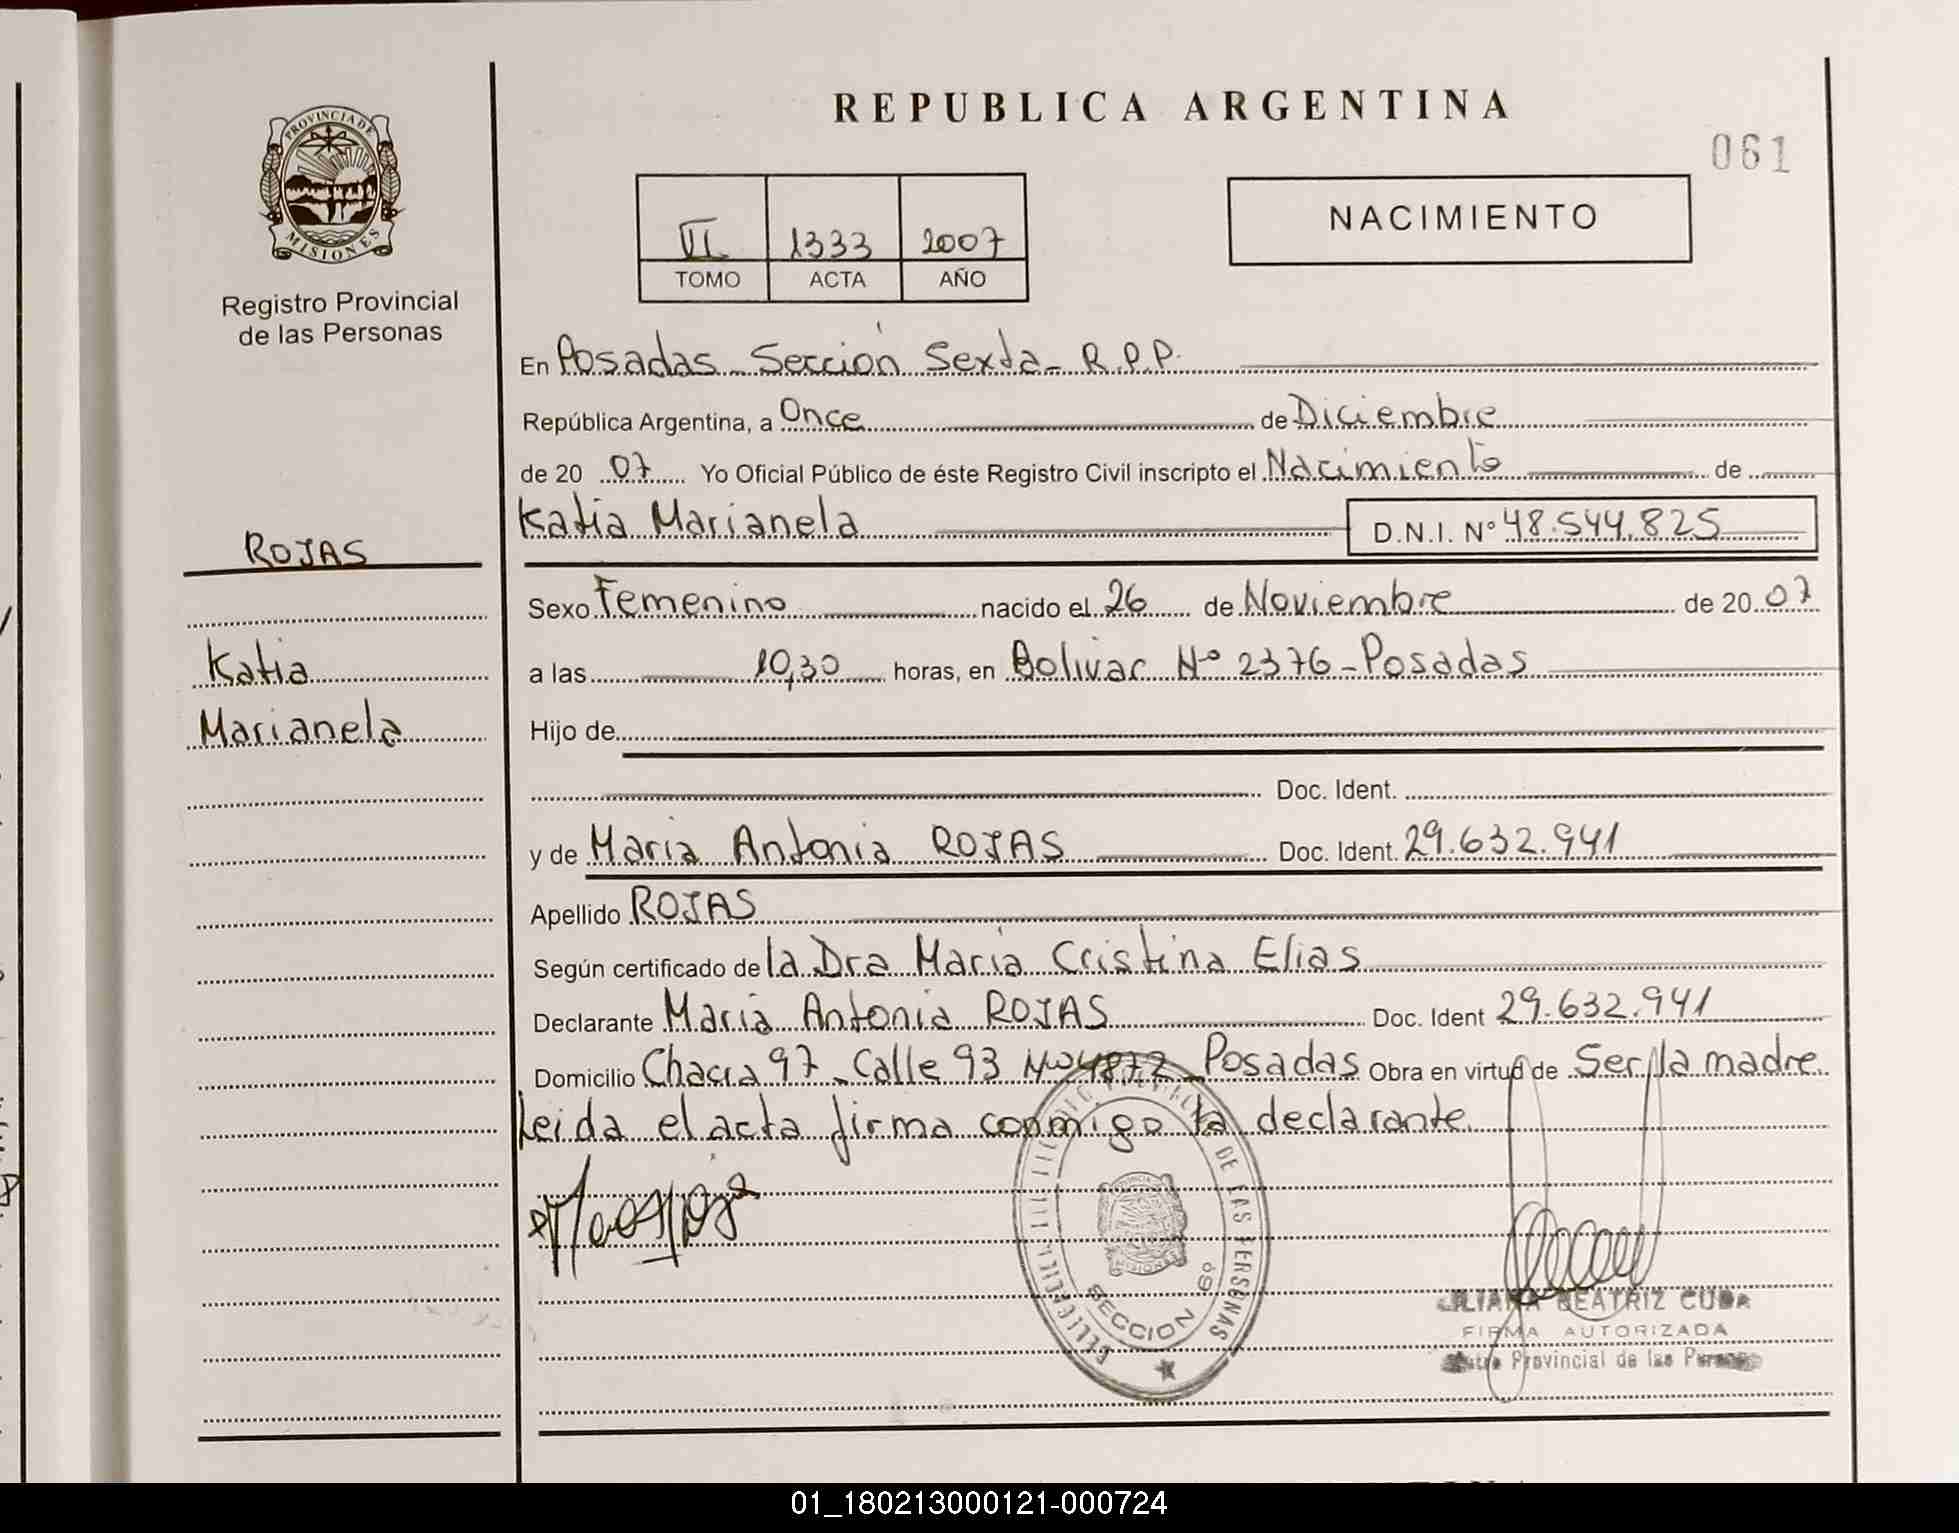 PROVINCIA DE
MISIONES
Registro Provincial
de las Personas
ROJAS
Katia
Marianela
REPUBLICA ARGENTINA
061
VI 1333 2007
TOMO ACTA AÑO
NACIMIENTO
En Posadas - Sección Sexta - R.P.P.
República Argentina, a Once de Diciembre
de 20 07 Yo Oficial Público de éste Registro Civil inscripto el Nacimiento de
Katia Marianela D.N.I. Nº 48.544.825
Sexo Femenino nacido el 26 de Noviembre de 20 07
a las 10,30 horas, en Bolivar Nº 2376 - Posadas
Hijo de
Doc. Ident.
y de Maria Antonia ROJAS Doc. Ident. 29.632.941
Apellido ROJAS
Según certificado de la Dra Maria Cristina Elias
Declarante Maria Antonia ROJAS Doc. Ident 29.632.941
Domicilio Chacra 97 - Calle 93 Nº 4872 - Posadas Obra en virtud de Ser la madre
Leida el acta firma conmigo la declarante
DE LAS PERSONAS
MISIONES
SECCION 6º
BEATRIZ CUBA
FIRMA AUTORIZADA
Provincial de las
01_180213000121-000724